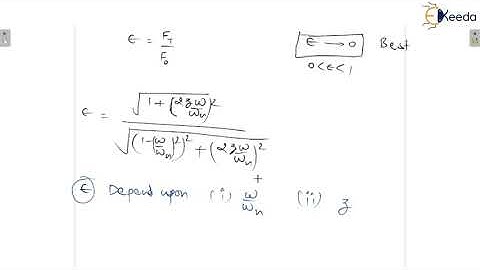 Ekeeda
ε = F_T / F_0
ε → 0 Best
0 < ε < 1
ε = √(1 + (2ξω/ω_n)²) / √((1-(ω/ω_n)²)² + (2ξω/ω_n)²)
ε Depend upon (i) ω/ω_n (ii) ξ